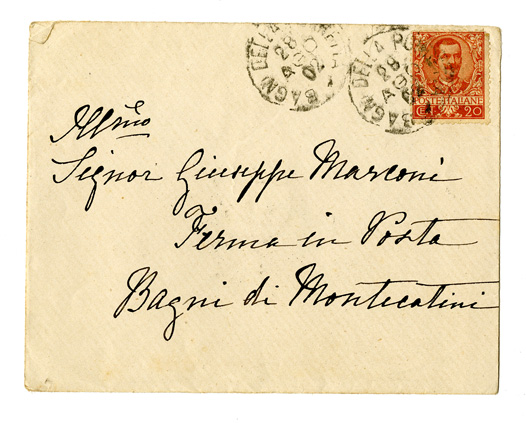 BAGNI DELLA
28
AGO
02
BAGNI DELLA PO
28
AGO
POSTE ITALIANE
20
Illmo
Signor Giuseppe Marconi
Ferma in Posta
Bagni di Montecatini